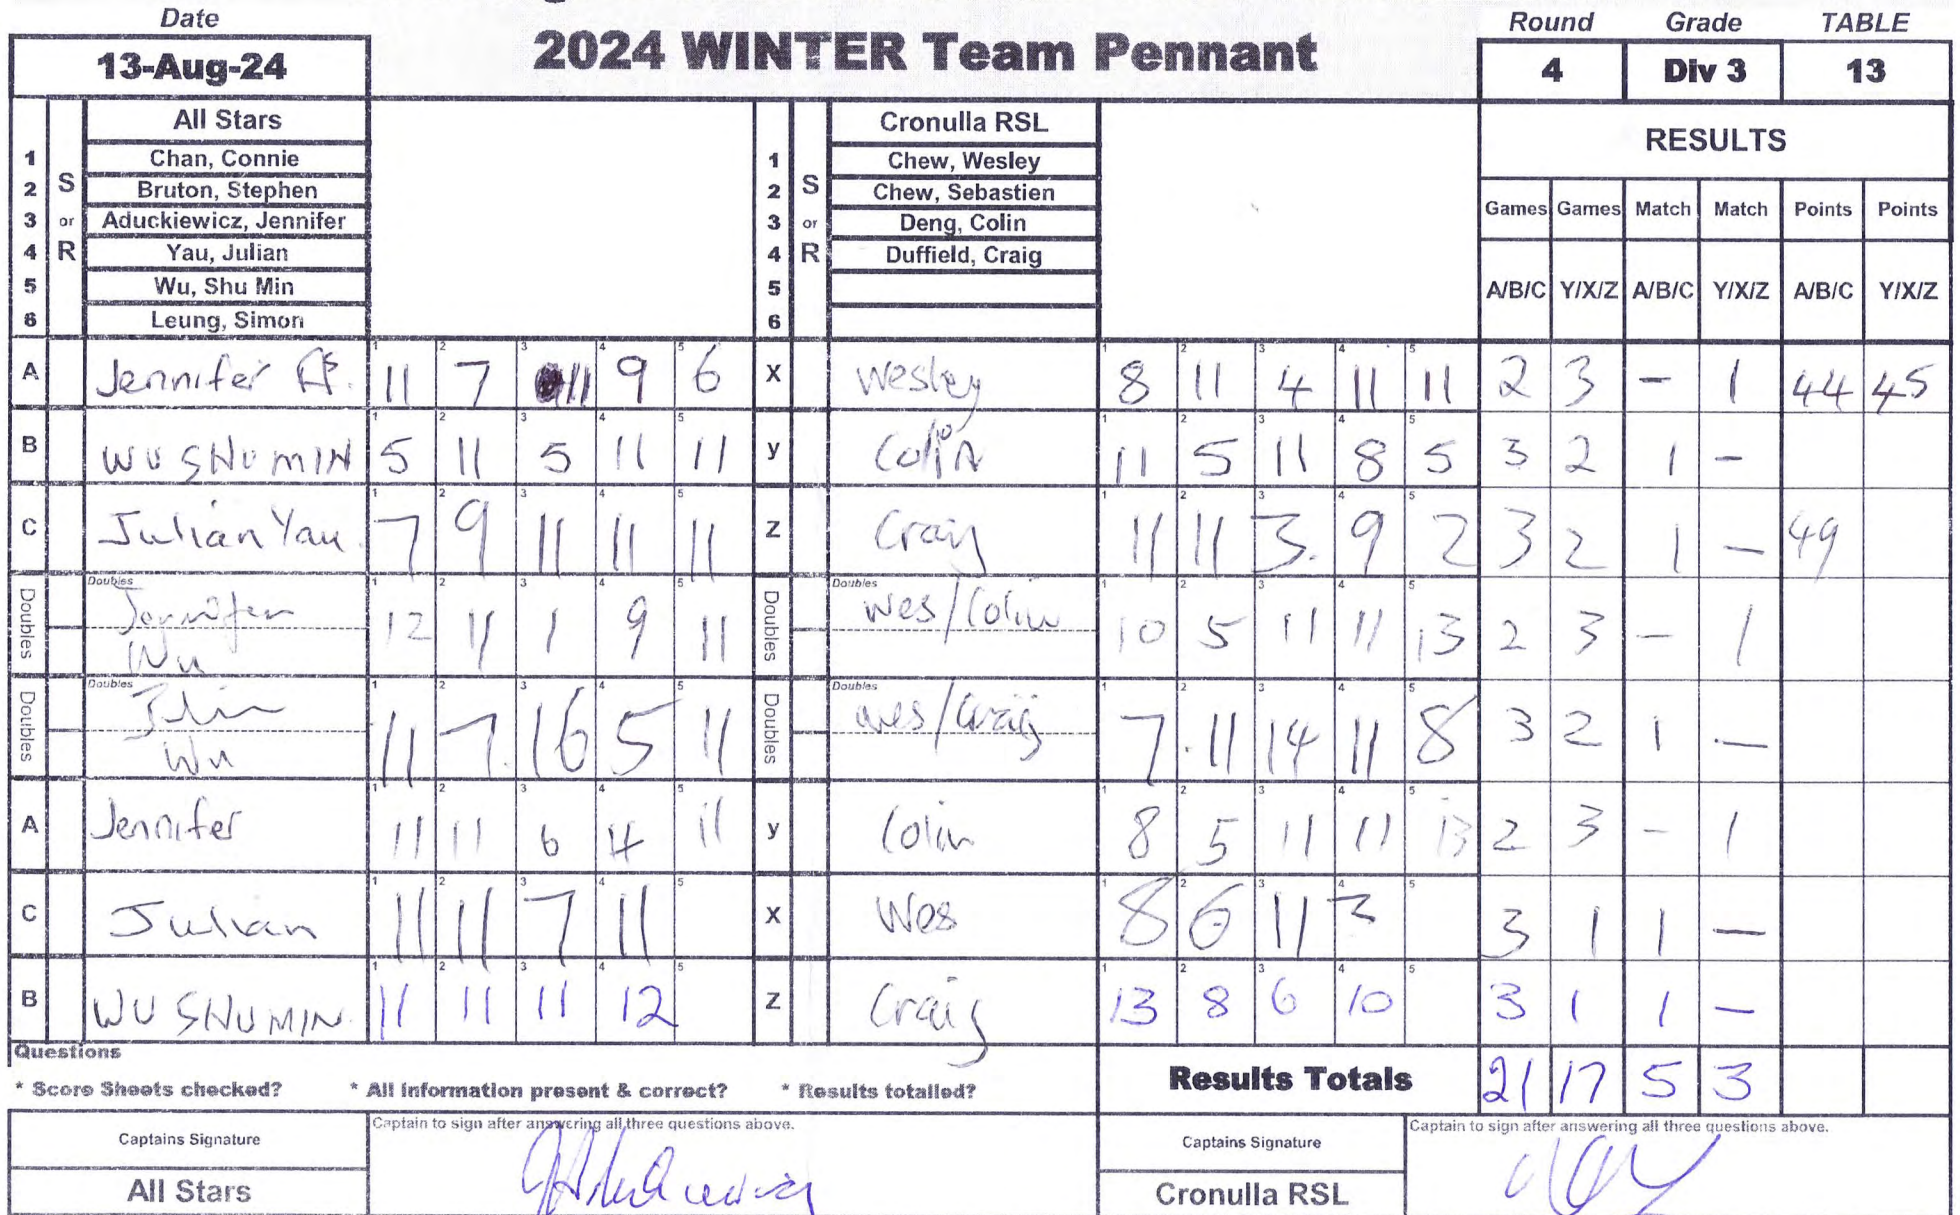 Date
2024 WINTER Team Pennant
Round Grade TABLE
13-Aug-24
4 Div 3 13
All Stars
Cronulla RSL
RESULTS
1 Chan, Connie
2 Bruton, Stephen
3 Aduckiewicz, Jennifer
4 Yau, Julian
5 Wu, Shu Min
6 Leung, Simon
S or R
1 Chew, Wesley
2 Chew, Sebastien
3 Deng, Colin
4 Duffield, Craig
5
6
S or R
Games Games Match Match Points Points
A/B/C Y/X/Z A/B/C Y/X/Z A/B/C Y/X/Z
A Jennifer 11 7 11 9 6 X Wesley 8 11 4 11 11 2 3 - 1 44 45
B WU SHU MIN 5 11 5 11 11 y Colin 11 5 11 8 5 3 2 1 -
C Julian Yau 7 9 11 11 11 Z Craig 11 11 3 9 2 3 2 1 - 49
Doubles Doubles Jennifer 12 11 1 9 11 Doubles Doubles Wes/Colin 10 5 11 11 13 2 3 - 1
Wu
Doubles Doubles 11 7 16 5 11 Doubles Doubles Wes/Craig 7 11 14 11 8 3 2 1 -
Wu
A Jennifer 11 11 6 4 11 y Colin 8 5 11 11 13 2 3 - 1
C Julian 11 11 7 11 X Wes 8 6 11 3 3 1 1 -
B WU SHU MIN 11 11 11 12 Z Craig 13 8 6 10 3 1 1 -
Questions
* Score Sheets checked? * All information present & correct? * Results totalled?
Results Totals 21 17 5 3
Captains Signature
Captain to sign after answering all three questions above.
All Stars
Captains Signature
Captain to sign after answering all three questions above.
Cronulla RSL